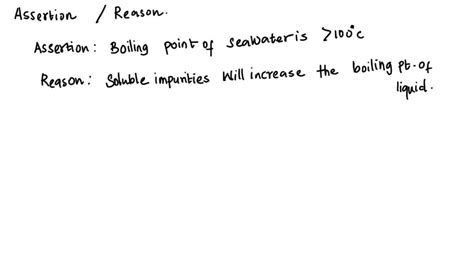 Assertion / Reason.
Assertion: Boiling point of seawater is >100°c
Reason: Soluble impurities Will increase the boiling pt. of
liquid.